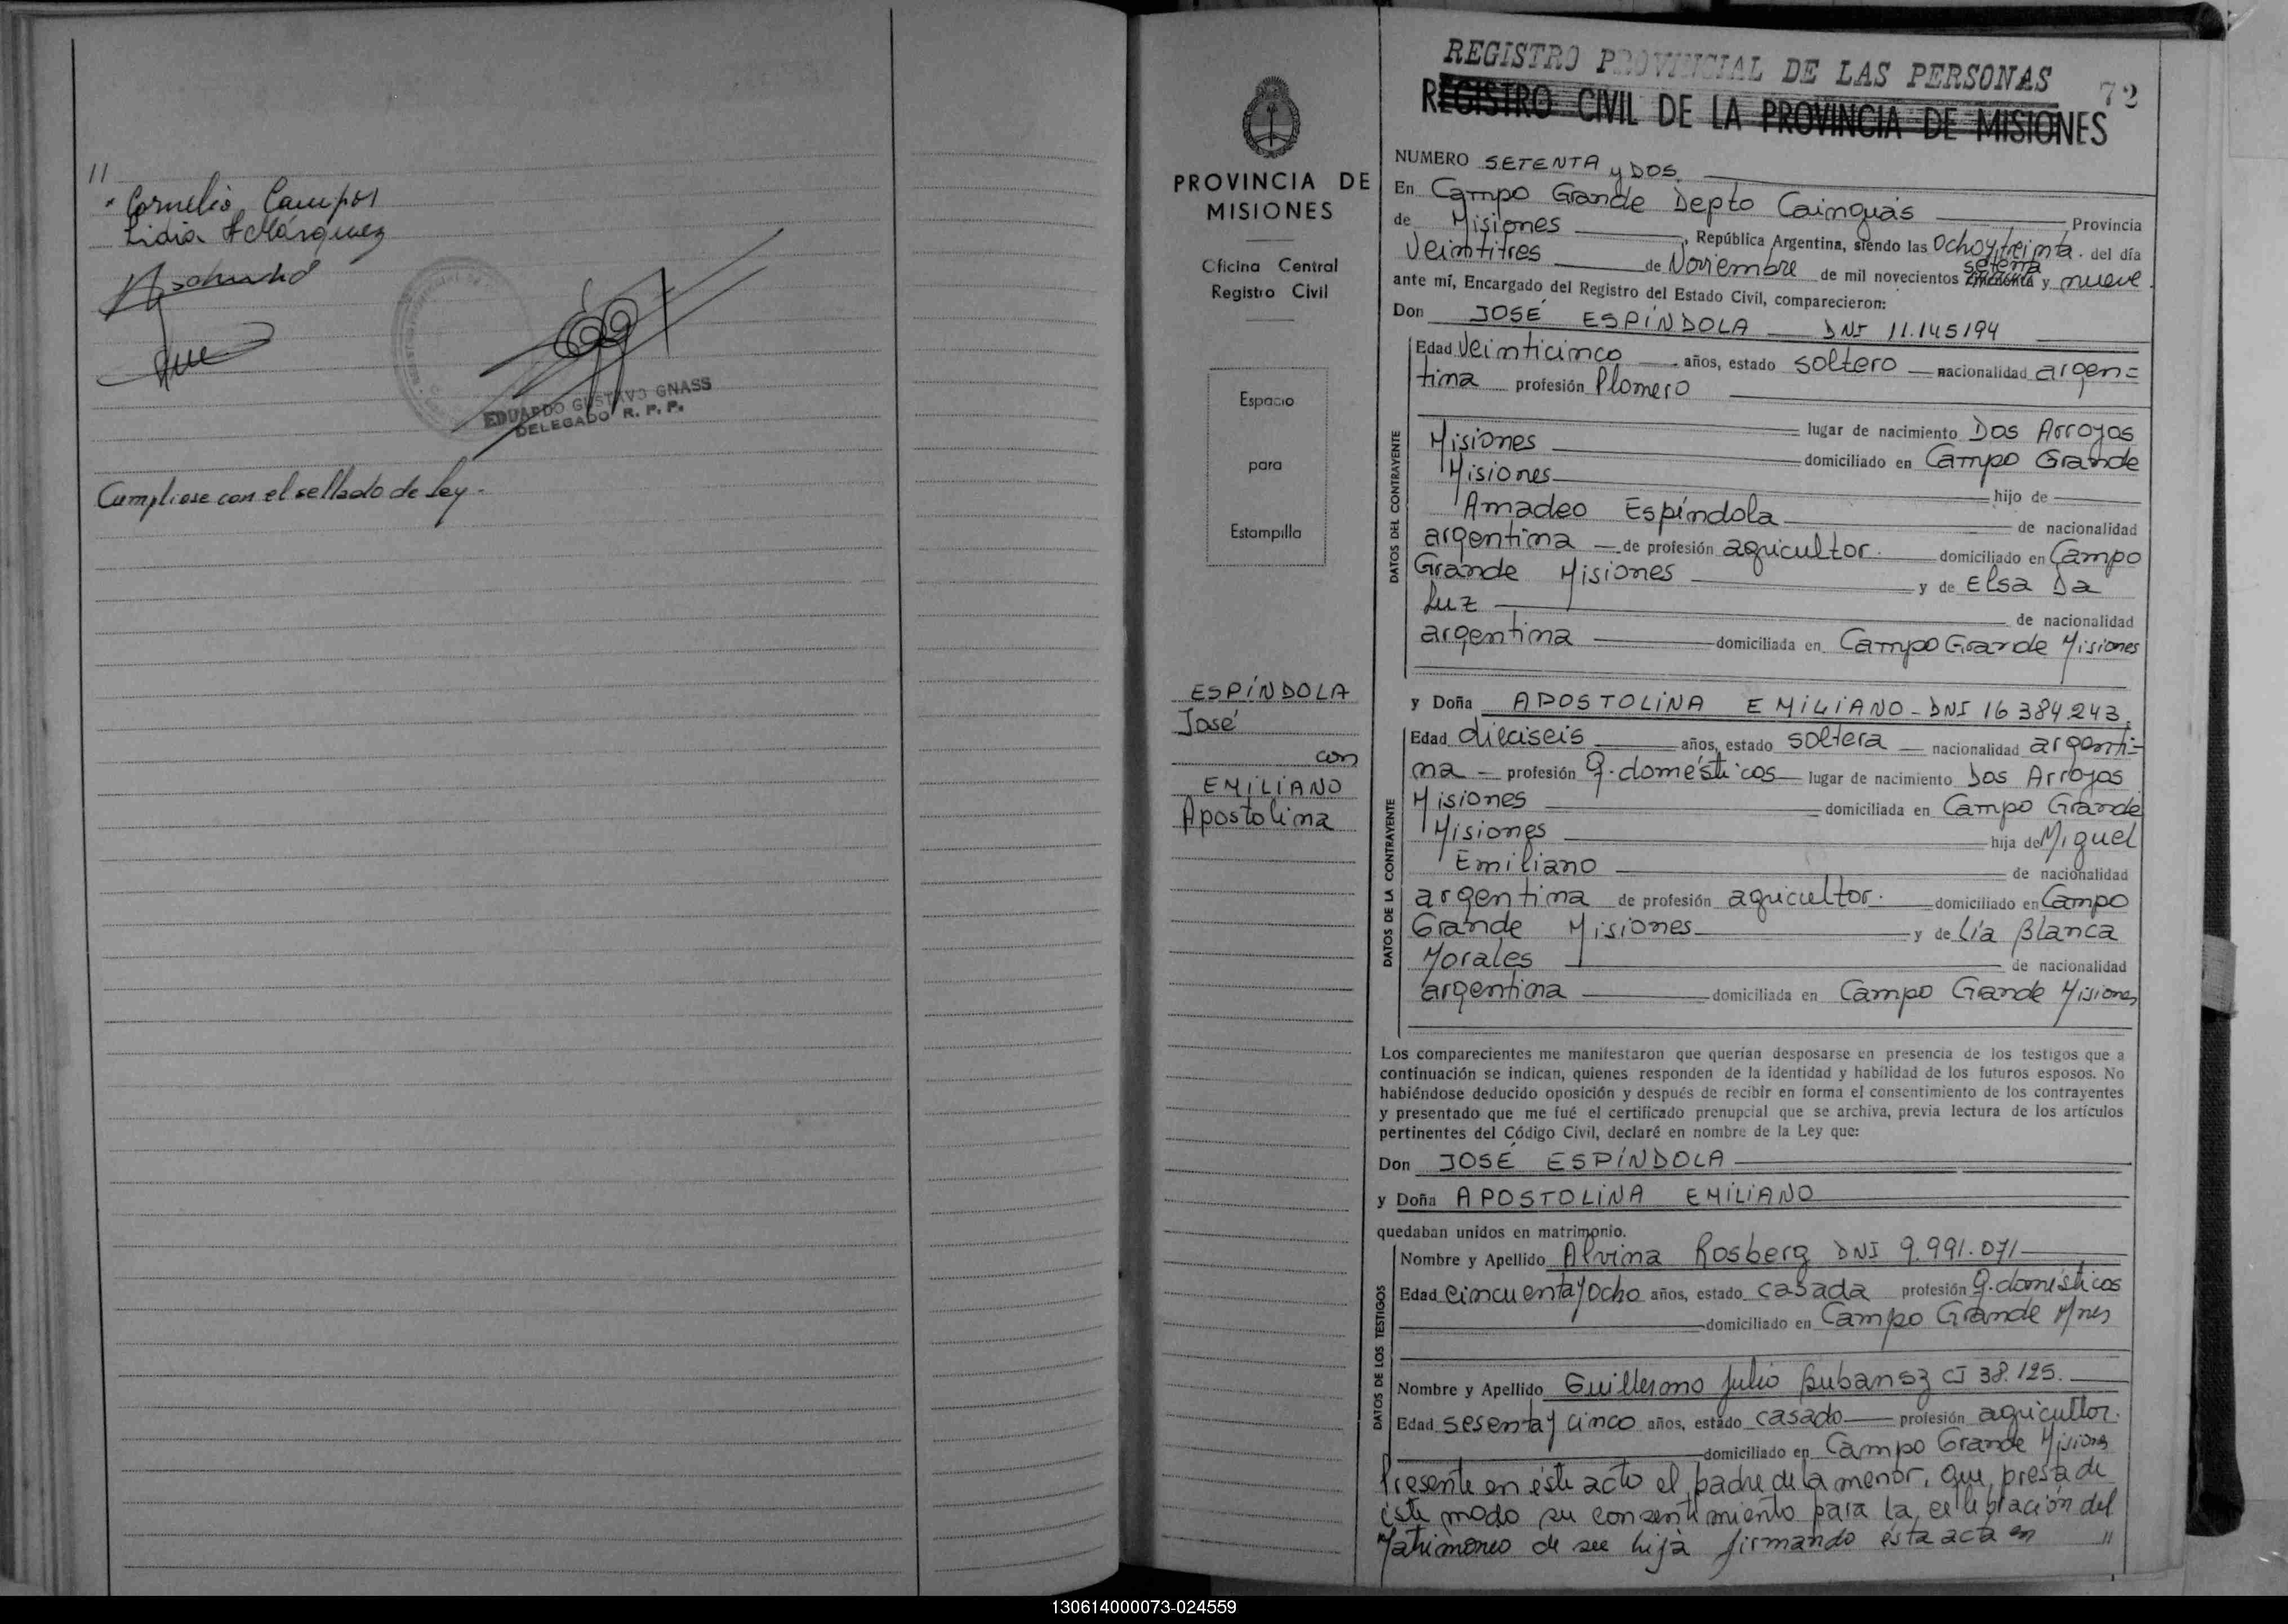 //
Cornelio Campos
Lidia H Márquez
EDUARDO GUSTAVO GNASS
DELEGADO R. P. P.
Cumpliose con el sellado de Ley.-
PROVINCIA DE
MISIONES
Oficina Central
Registro Civil
Espacio
para
Estampilla
ESPÍNDOLA
José
con
EMILIANO
Apostolina
REGISTRO PROVINCIAL DE LAS PERSONAS
72
REGISTRO CIVIL DE LA PROVINCIA DE MISIONES
NUMERO SETENTA y DOS.
En Campo Grande Depto Cainguás Provincia
de Misiones, República Argentina, siendo las Ochoytreinta. del día
Veintitres de Noviembre de mil novecientos setenta y nueve.
ante mí, Encargado del Registro del Estado Civil, comparecieron:
Don JOSÉ ESPÍNDOLA DNI 11.145194
DATOS DEL CONTRAYENTE
Edad Veinticinco años, estado soltero nacionalidad argen=
tina profesión Plomero
lugar de nacimiento Dos Arroyos
Misiones domiciliado en Campo Grande
Misiones hijo de
Amadeo Espíndola de nacionalidad
argentina de profesión agricultor. domiciliado en Campo
Grande Misiones y de Elsa Da
Luz de nacionalidad
argentina domiciliada en Campo Grande Misiones
y Doña APOSTOLINA EMILIANO - DNI 16 384.243.
DATOS DE LA CONTRAYENTE
Edad dieciseis años, estado soltera nacionalidad argenti=
na profesión Q. domésticos lugar de nacimiento Dos Arroyos
Misiones domiciliada en Campo Grande
Misiones hija de Miguel
Emiliano de nacionalidad
argentina de profesión agricultor. domiciliado en Campo
Grande Misiones y de Lía Blanca
Morales de nacionalidad
argentina domiciliada en Campo Grande Misiones
Los comparecientes me manifestaron que querían desposarse en presencia de los testigos que a
continuación se indican, quienes responden de la identidad y habilidad de los futuros esposos. No
habiéndose deducido oposición y después de recibir en forma el consentimiento de los contrayentes
y presentado que me fué el certificado prenupcial que se archiva, previa lectura de los artículos
pertinentes del Código Civil, declaré en nombre de la Ley que:
Don JOSÉ ESPÍNDOLA
y Doña APOSTOLINA EMILIANO
quedaban unidos en matrimonio.
DATOS DE LOS TESTIGOS
Nombre y Apellido Alvina Rosberg DNI 9.991.071
Edad Cincuentayocho años, estado casada profesión Q. domésticos
domiciliado en Campo Grande Mnes
Nombre y Apellido Guillermo Julio CI 38.125.
Edad sesentay cinco años, estado casado profesión agricultor.
domiciliado en Campo Grande Misiones
Presente en éste acto el padre de la menor, que presta de
éste modo su consentimiento para la celebración del
Matrimonio de su hija firmando ésta acta en //
130614000073-024559